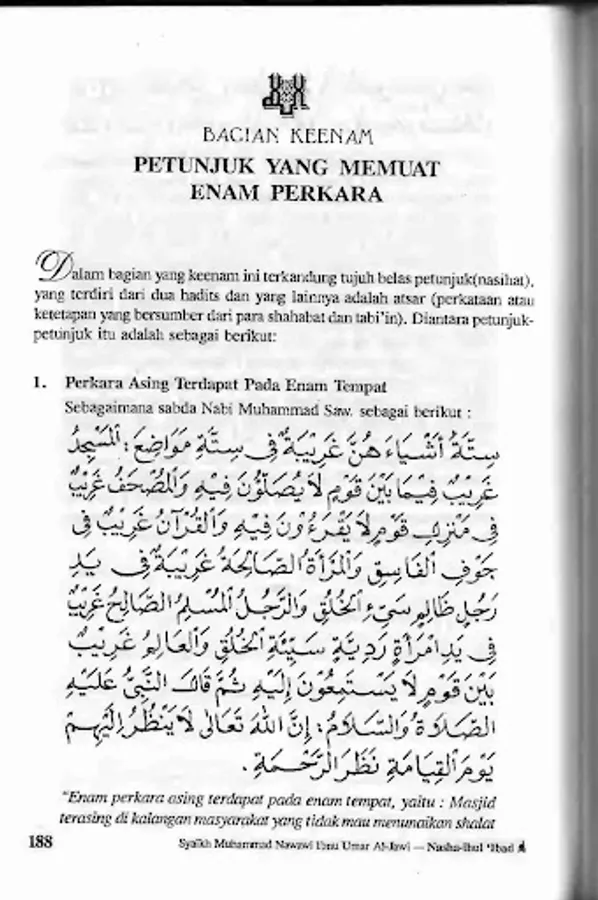 BAGIAN KEENAM
PETUNJUK YANG MEMUAT
ENAM PERKARA
Dalam bagian yang keenam ini terkandung tujuh belas petunjuk(nasihat),
yang terdiri dari dua hadits dan yang lainnya adalah atsar (perkataan atau
ketetapan yang bersumber dari para shahabat dan tabi'in). Diantara petunjuk-
petunjuk itu adalah sebagai berikut:
1. Perkara Asing Terdapat Pada Enam Tempat
Sebagaimana sabda Nabi Muhammad Saw. sebagai berikut :
سِتَّةُ أَشْيَاءَ هُنَّ غَرِيْبَةٌ فِى سِتَّةِ مَوَاضِعَ : اَلْمَسْجِدُ
غَرِيْبٌ فِيْمَا بَيْنَ قَوْمٍ لَا يُصَلُّوْنَ فِيْهِ وَالْمُصْحَفُ غَرِيْبٌ
فِى مَنْزِلِ قَوْمٍ لَا يَقْرَءُوْنَ فِيْهِ وَالْقُرْآنُ غَرِيْبٌ فِى
جَوْفِ الْفَاسِقِ وَالْمَرْأَةُ الصَّالِحَةُ غَرِيْبَةٌ فِى يَدِ
رَجُلٍ ظَالِمٍ سَيِّءِ الْخُلُقِ وَالرَّجُلُ الْمُسْلِمُ الصَّالِحُ غَرِيْبٌ
فِى يَدِ امْرَأَةٍ رَدِيَّةٍ سَيِّئَةِ الْخُلُقِ وَالْعَالِمُ غَرِيْبٌ
بَيْنَ قَوْمٍ لَا يَسْتَمِعُوْنَ إِلَيْهِ ثُمَّ قَالَ النَّبِيُّ عَلَيْهِ
الصَّلَاةُ وَالسَّلَامُ : إِنَّ اللهَ تَعَالَى لَا يَنْظُرُ إِلَيْهِمْ
يَوْمَ الْقِيَامَةِ نَظَرَ الرَّحْمَةِ .
"Enam perkara asing terdapat pada enam tempat, yaitu : Masjid
terasing di kalangan masyarakat yang tidak mau menunaikan shalat
188 Syaikh Muhammad Nawawi Ibnu Umar Al-Jawi — Nasha-ihul 'Ibad